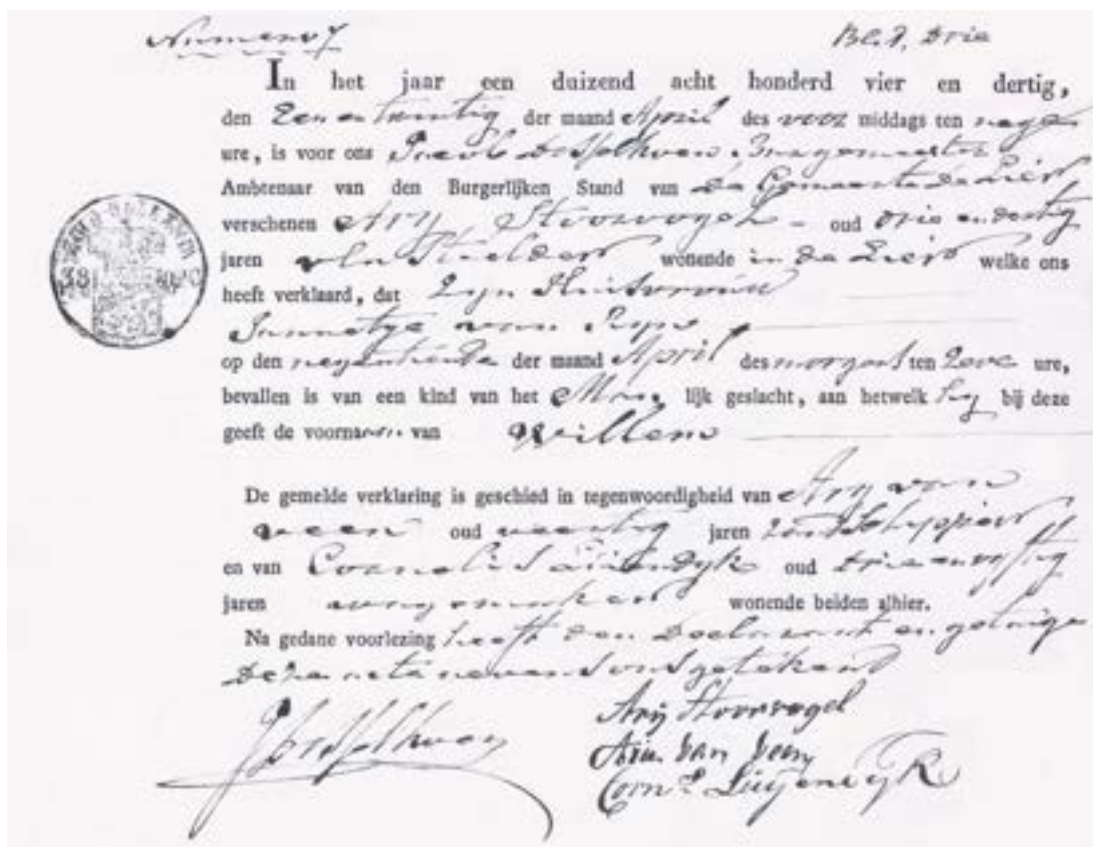 Numero 7 Bl. 7, Drie
In het jaar een duizend acht honderd vier en dertig,
den Een en twintig der maand April des voor middags ten negen
ure, is voor ons Burgemeester
Ambtenaar van den Burgerlijken Stand van de Gemeente de Lier
verschenen Arij Stoorvogel - oud drie en dertig
jaren wonende in de Lier welke ons
heeft verklaard, dat Zijn Huisvrouw
Jannetje van
op den negentiende der maand April des morgens ten ure,
bevallen is van een kind van het Man lijk geslacht, aan hetwelk hij bij deze
geeft de voornamen van Willem
De gemelde verklaring is geschied in tegenwoordigheid van Arij van
Veen oud veertig jaren
en van Cornelis Luijendijk oud drie en vijftig
jaren wonende beiden alhier.
Na gedane voorlezing heeft den Declarant en getuige
deze acte nevens ons getekend
Arij Stoorvogel
Arie van Veen
Corns Luijendijk